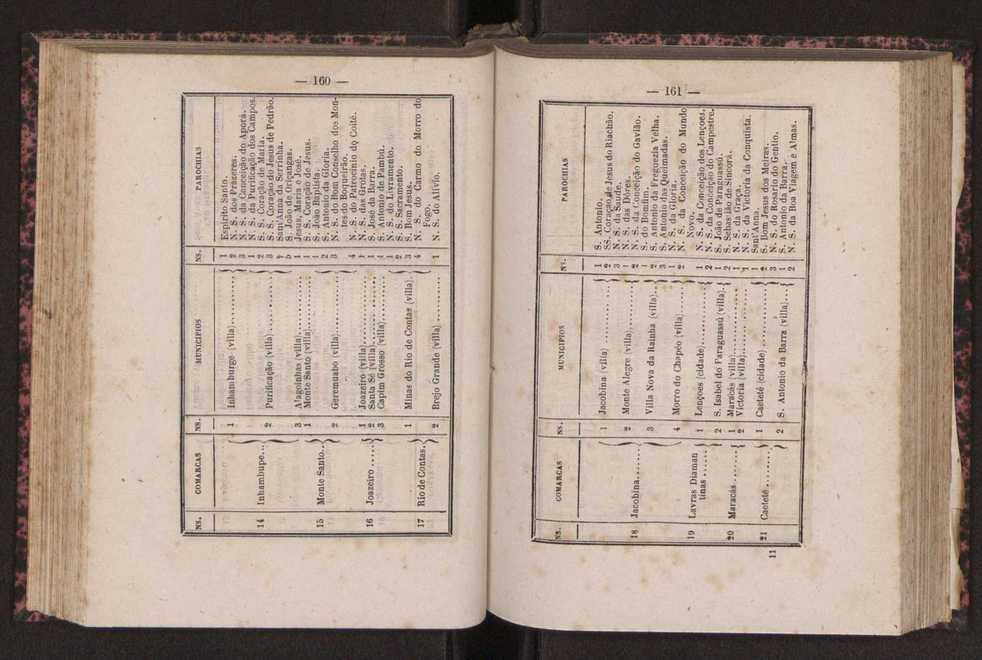 — 160 —
NS. COMARCAS NS. MUNICIPIOS NS. PAROCHIAS
14 Inhambupe... 1 Inhamburge (villa)........ 1 Espirito Santo.
2 N. S. dos Prazeres.
3 N. S. da Conceição do Aporá.
2 Purificação (villa)........ 1 N. S. da Purificação dos Campos.
2 S. S. Coração de Maria.
3 S. S. Coração de Jesus de Pedrão.
Sant'Anna da Serrinha.
S. João de Oriçangas.
3 Alagoinhas (villa)........ 1 Jesus, Maria e José.
15 Monte Santo. 1 Monte Santo (villa)....... 1 S. S. Coração de Jesus.
2 Geremuabo (villa)........ 1 S. João Baptista.
2 S. Antonio da Gloria.
3 N. S. do Bom Conselho dos Mon-
tes do Boqueirão.
4 N. S. do Patrocinio do Coité.
16 Joazeiro..... 1 Joazeiro (villa)........ N. S. das Grotas.
2 Santa Sé (villa)........ 1 S. José da Barra.
3 Capim Grosso (villa)..... 1 S. Antonio de Pambú.
17 Rio de Contas. 1 Minas do Rio de Contas (villa) 1 N. S. do Livramento.
2 S. S. Sacramento.
3 S. Bom Jesus.
4 N. S. do Carmo do Morro do
Fogo.
2 Brejo Grande (villa)........ 1 N. S. do Alivio.
— 161 —
NS. COMARCAS NS. MUNICIPIOS PAROCHIAS
18 Jacobina...... 1 Jacobina (villa)........ 1 S. Antonio.
2 SS. Coração de Jesus do Riachão.
3 N. S. da Saude.
2 Monte Alegre (villa)..... 1 N. S. das Dôres.
2 N. S. da Conceição do Gavião.
3 Villa Nova da Rainha (villa).. 1 S. do Bomfim.
2 S. Antonio da Freguezia Velha.
3 S. Antonio das Queimadas.
4 Morro do Chapéo (villa)..... 1 N. S. da Gloria.
2 N. S. da Conceição do Mundo
Novo.
19 Lavras Diaman
tinas...... 1 Lençoes (cidade)........ 1 N. S. da Conceição dos Lençoes.
2 N. S. da Conceição do Campestre.
2 S. Isabel do Paraguassú (villa). 1 S. João de Paraguassú.
2 S. Sebastião de Sincorá.
20 Maracás...... 1 Maracás (villa)........ 1 N. S. da Graça.
2 Victoria (villa)........ 1 N. S. da Victoria da Conquista.
21 Caeteté...... 1 Caeteté (cidade)........ 1 Sant'Anna.
2 S. Bom Jesus dos Meiras.
3 N. S. do Rosario do Gentio.
2 S. Antonio da Barra (villa)... 1 S. Antonio da Barra.
2 N. S. da Boa Viagem e Almas.
11